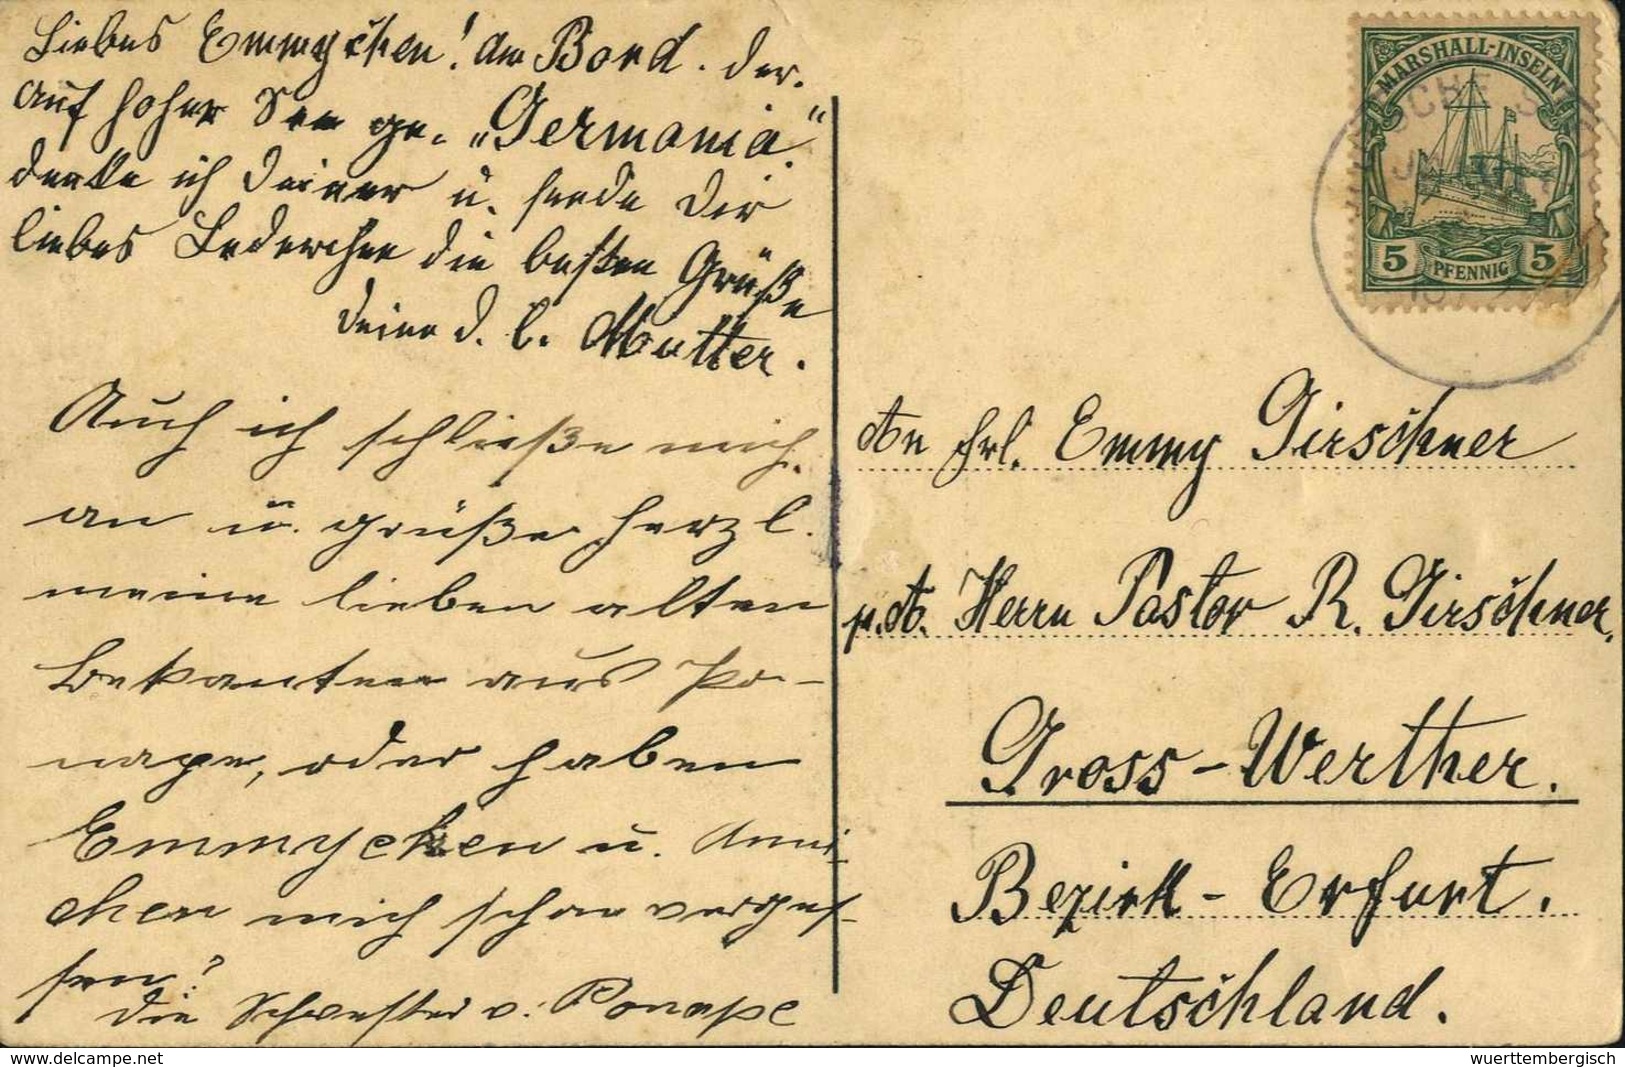 Liebes Emmychen! An Bord der
auf hoher See ge. „Germania“
denke ich Deiner u. sende Dir
liebes Lederchen die besten Grüße
Deine d. l. Mutter.
Auch ich schließe mich
an u. grüße herzl.
meine lieben alten
Bekanten aus Po-
nape, oder haben
Emmychen u. Anni-
chen mich schon verges-
sen?
Die Schwester v. Ponape
MARSHALL-INSELN
5 PFENNIG 5
An Frl. Emmy Girschner
p. A. Herrn Pastor R. Girschner.
Gross-Werther.
Bezirk-Erfurt.
Deutschland.
www.delcampe.net
wuerttembergisch